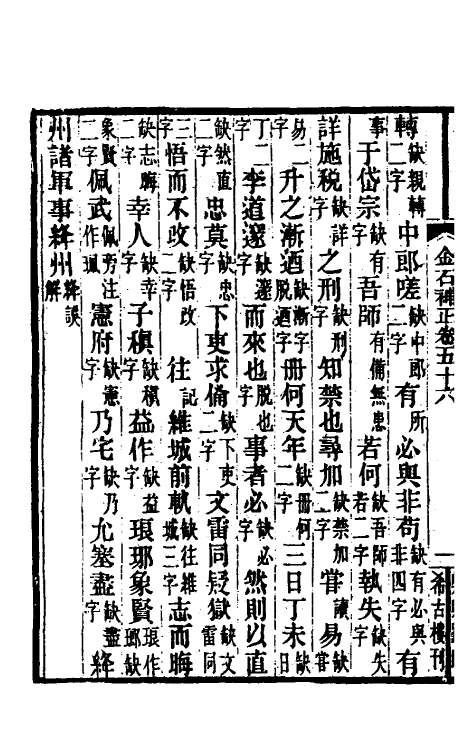 金石補正卷五十六
一
希古樓刊
轉缺親轉二字中郎嗟缺中郎二字有所必與非苟缺有必與非四字有
事于岱宗缺有字吾師有備無患若何缺吾師若二字執失缺失字
詳施稅缺詳字之刑缺刑字知禁也尋加缺禁加二字嘗讀易缺嘗
易二字升之漸迺缺漸字脫迺字冊何天年缺冊何二字三日丁未缺日
丁二字李道邃缺邃字而來也脫也字事者必缺必字然則以直
缺然直二字忠莫缺忠字下吏求倫缺下吏二字文雷同疑獄缺文雷同
三字悟而不改缺悟改二字往記維城前軌缺往維城三字志而晦
缺志晦二字幸人缺幸字子稹缺稹字益作缺益字琅邪象賢琅作瑯缺
象賢二字佩武佩旁注作珮憲府缺憲字乃宅缺乃字允塞盡缺盡字絳
州諸軍事絳州絳誤解